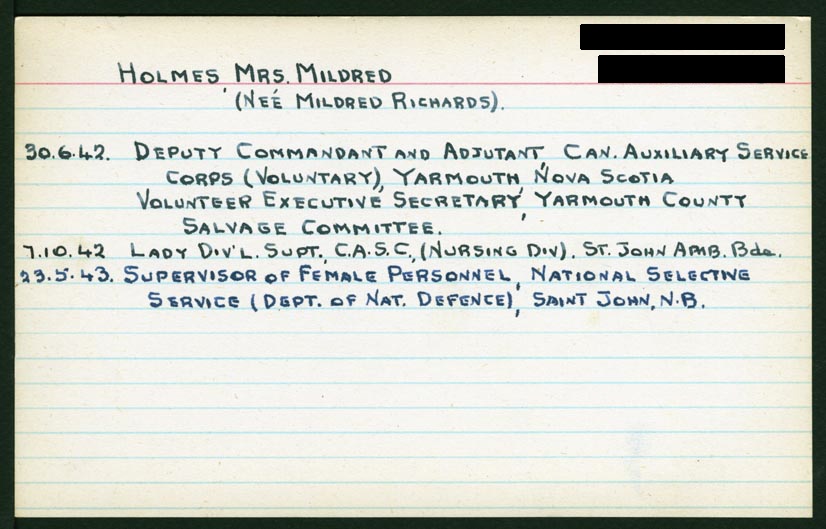 HOLMES, MRS. MILDRED
(NEÉ MILDRED RICHARDS).
30.6.42. DEPUTY COMMANDANT AND ADJUTANT, CAN. AUXILIARY SERVICE
CORPS (VOLUNTARY), YARMOUTH, NOVA SCOTIA
VOLUNTEER EXECUTIVE SECRETARY, YARMOUTH COUNTY
SALVAGE COMMITTEE.
7.10.42 LADY DIV'L. SUPT., C.A.S.C., (NURSING DIV). ST. JOHN AMB. Bde.
23.5.43. SUPERVISOR OF FEMALE PERSONNEL, NATIONAL SELECTIVE
SERVICE (DEPT. OF NAT. DEFENCE), SAINT JOHN, N.B.